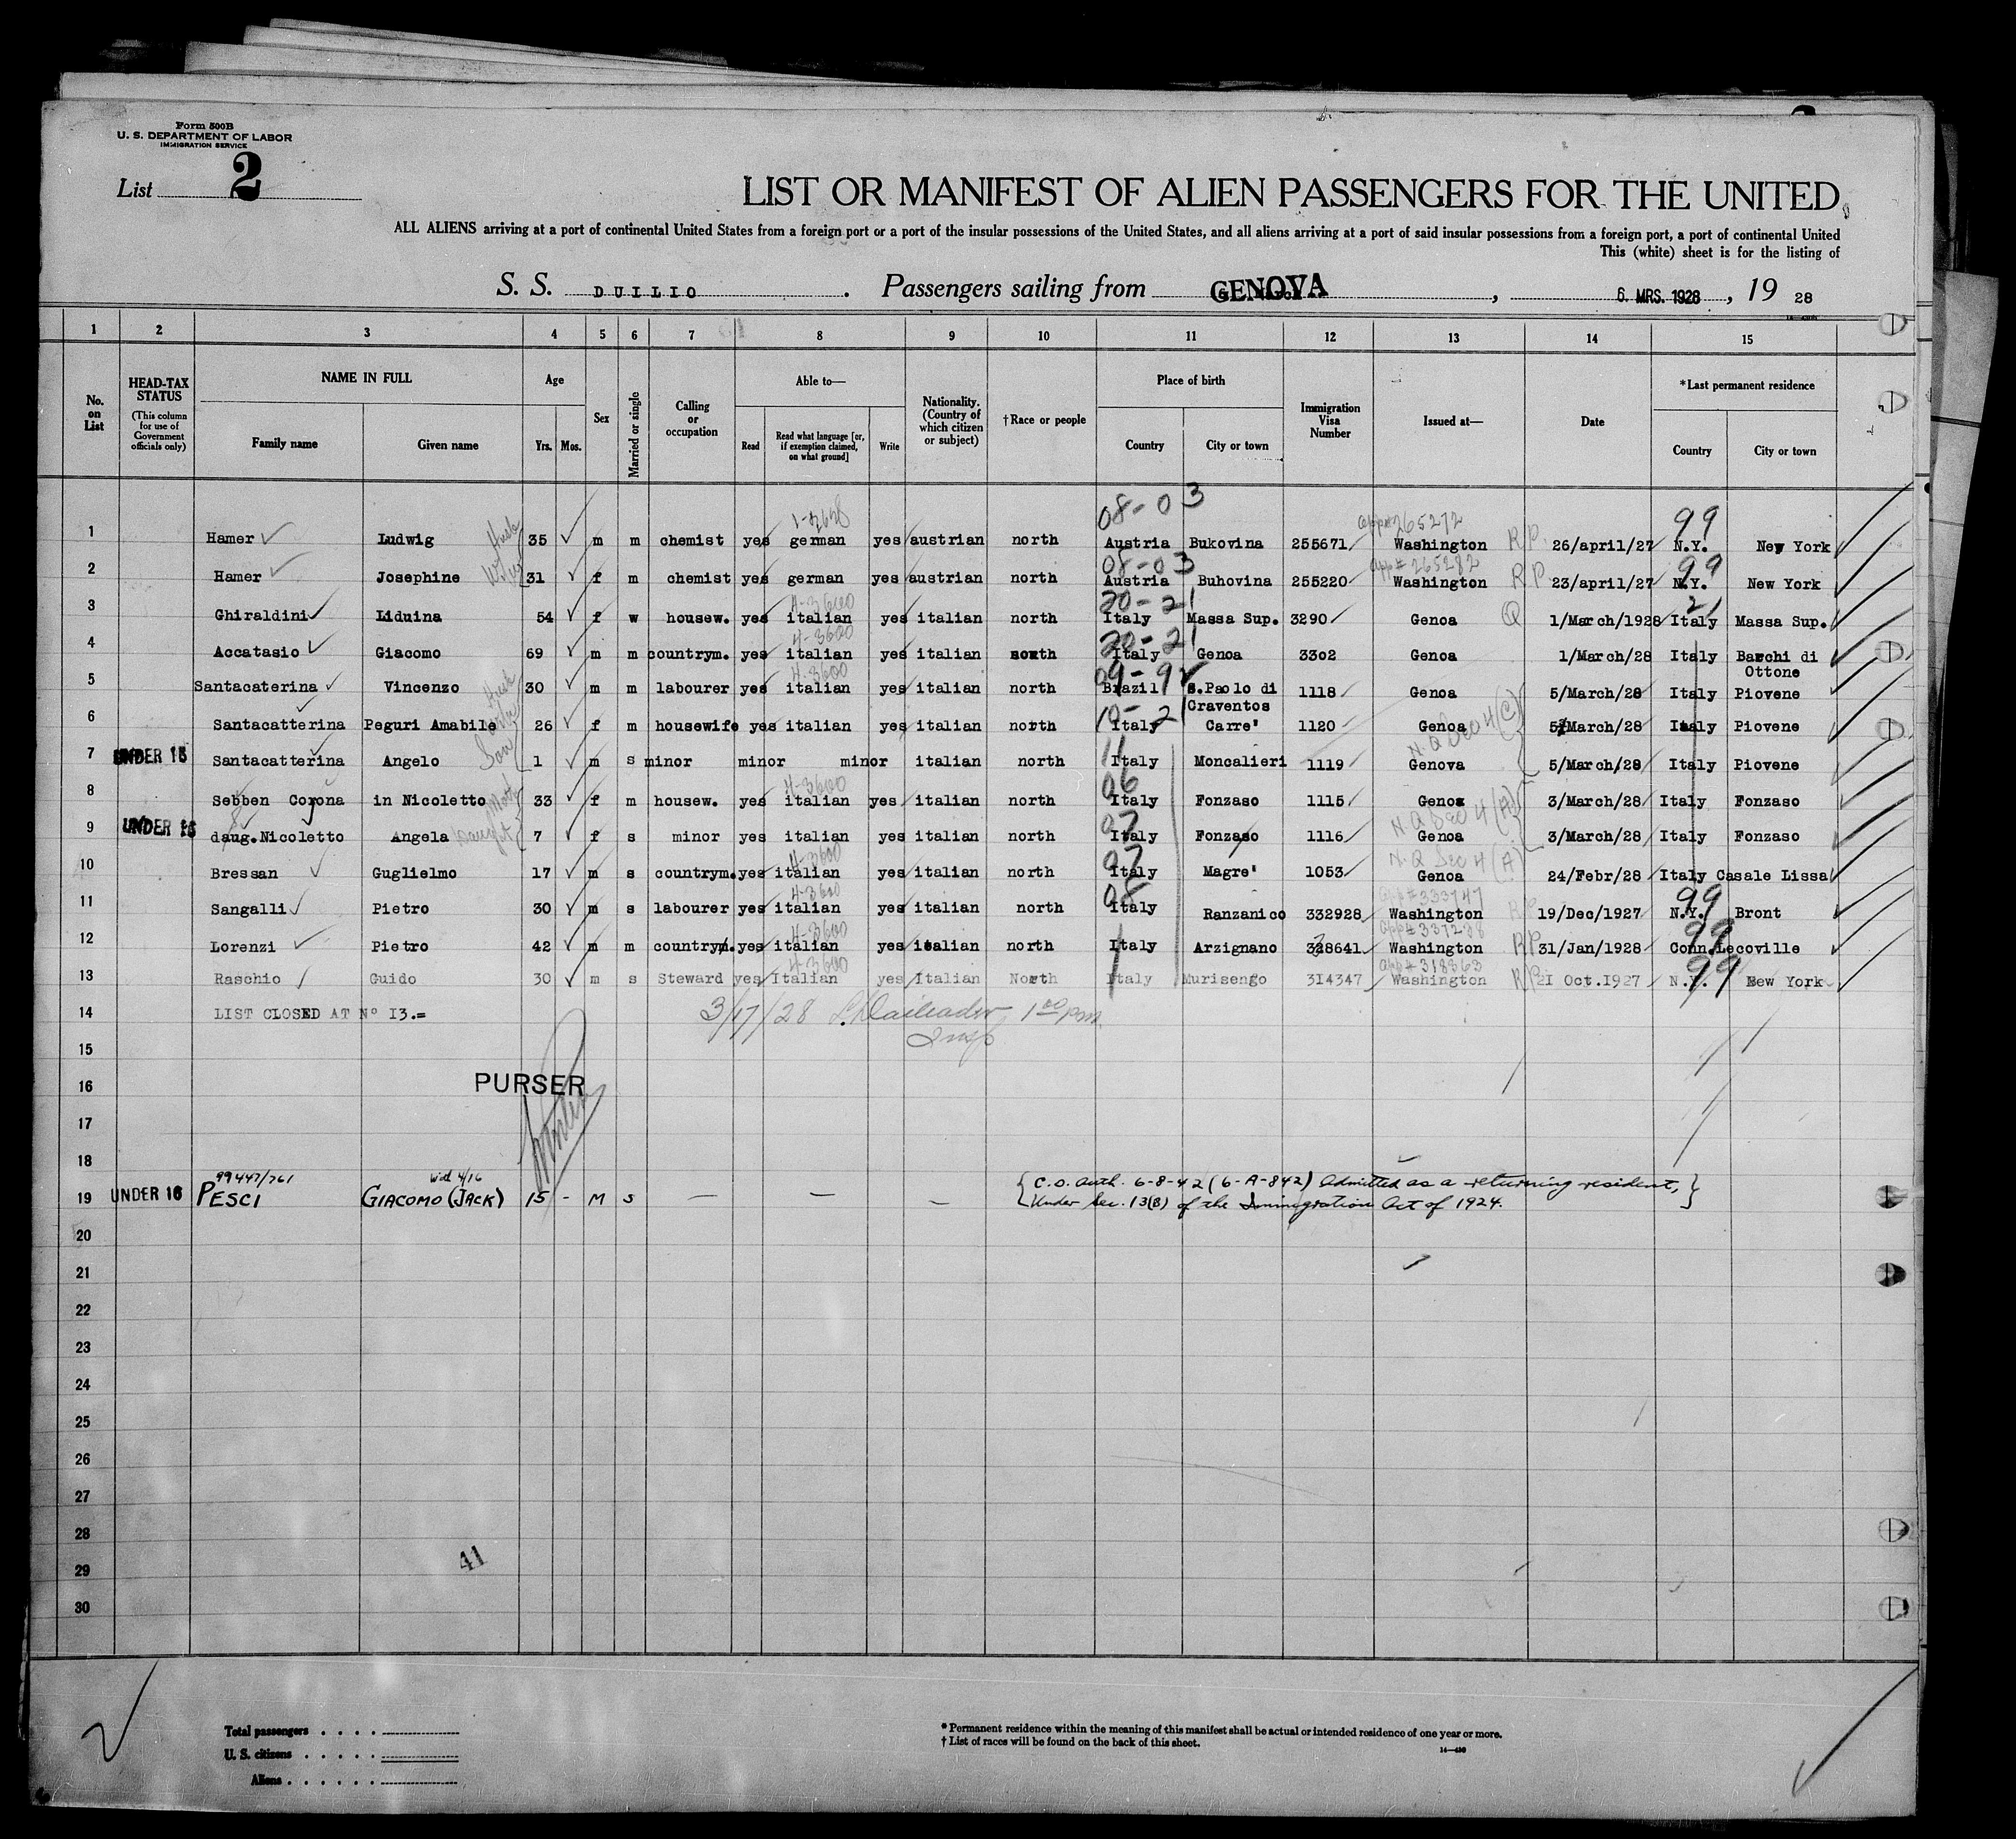 Form 500B
U. S. DEPARTMENT OF LABOR
IMMIGRATION SERVICE
List 2
LIST OR MANIFEST OF ALIEN PASSENGERS FOR THE UNITED
ALL ALIENS arriving at a port of continental United States from a foreign port or a port of the insular possessions of the United States, and all aliens arriving at a port of said insular possessions from a foreign port, a port of continental United
This (white) sheet is for the listing of
S. S. DUILIO . Passengers sailing from GENOVA , 6. MRS. 1928 , 19 28
1 2 3 4 5 6 7 8 9 10 11 12 13 14 15
No. on List
HEAD-TAX STATUS (This column for use of Government officials only)
NAME IN FULL
Family name Given name
Age
Yrs. Mos.
Sex
Married or single
Calling or occupation
Able to—
Read Read what language [or, if exemption claimed, on what ground] Write
Nationality. (Country of which citizen or subject)
†Race or people
Place of birth
Country City or town
Immigration Visa Number
Issued at—
Date
*Last permanent residence
Country City or town
08-03 app# 265272 99
1 Hamer Ludwig Husb 35 m m chemist yes german yes austrian north Austria Bukovina 255671 Washington RP 26/april/27 N.Y. New York
08-03 app# 265282 99
2 Hamer Josephine Wife 31 f m chemist yes german yes austrian north Austria Buhovina 255220 Washington RP 23/april/27 N.Y. New York
4-3600 20-21 21
3 Ghiraldini Liduina 54 f w housew. yes italian yes italian north Italy Massa Sup. 3290 Genoa Q 1/March/1928 Italy Massa Sup.
4-3600 20-21
4 Accatasio Giacomo 69 m m countrym. yes italian yes italian north Italy Genoa 3302 Genoa 1/March/28 Italy Barchi di Ottone
4-3600 09-9
5 Santacaterina Vincenzo Husb 30 m m labourer yes italian yes italian north Brazil S.Paolo di Craventos 1118 Genoa 5/March/28 Italy Piovene
10-2
6 Santacatterina Peguri Amabile 26 f m housewife yes italian yes italian north Italy Carre' 1120 Genoa 5/March/28 Italy Piovene
N.Q Sec 4 (C)
11
7 UNDER 16 Santacatterina Angelo Son 1 m s minor minor minor italian north Italy Moncalieri 1119 Genova 5/March/28 Italy Piovene
4-3600 06
8 Sebben Corona in Nicoletto Moth 33 f m housew. yes italian yes italian north Italy Fonzaso 1115 Genoa 3/March/28 Italy Fonzaso
N.Q Sec 4 (A)
07
9 UNDER 16 daug.Nicoletto Angela Daught 7 f s minor yes italian yes italian north Italy Fonzaso 1116 Genoa 3/March/28 Italy Fonzaso
4-3600 07 N.Q Sec 4 (A)
10 Bressan Guglielmo 17 m s countrym. yes italian yes italian north Italy Magre' 1053 Genoa 24/Febr/28 Italy Casale Lissa
4-3600 08 app# 333747 99
11 Sangalli Pietro 30 m s labourer yes italian yes italian north Italy Ranzanico 332928 Washington RP 19/Dec/1927 N.Y. Bront
4-3600 99
12 Lorenzi Pietro 42 m m countrym. yes italian yes italian north Italy Arzignano 328641 Washington RP 31/Jan/1928 Conn. Lecoville
4-3600 app# 318363 99
13 Raschio Guido 30 m s Steward yes Italian yes Italian North Italy Murisengo 314347 Washington RP 21 Oct.1927 N.Y. Bew York
14 LIST CLOSED AT Nº 13.= 3/17/28 1 00 P.m.
Insp
15
16 PURSER
17
18
99447/761 4/16
19 UNDER 16 PESCI GIACOMO (JACK) 15 - M S — — — {C.O. Auth. 6-8-42 (6-A-842) Admitted as a returning resident,
Under Sec. 13(B) of the Immigration Act of 1924.}
20
21
22
23
24
25
26
27
28
29 41
30
Total passengers . . . .
U. S. citizens . . . . .
Aliens . . . . . .
* Permanent residence within the meaning of this manifest shall be actual or intended residence of one year or more.
† List of races will be found on the back of this sheet.